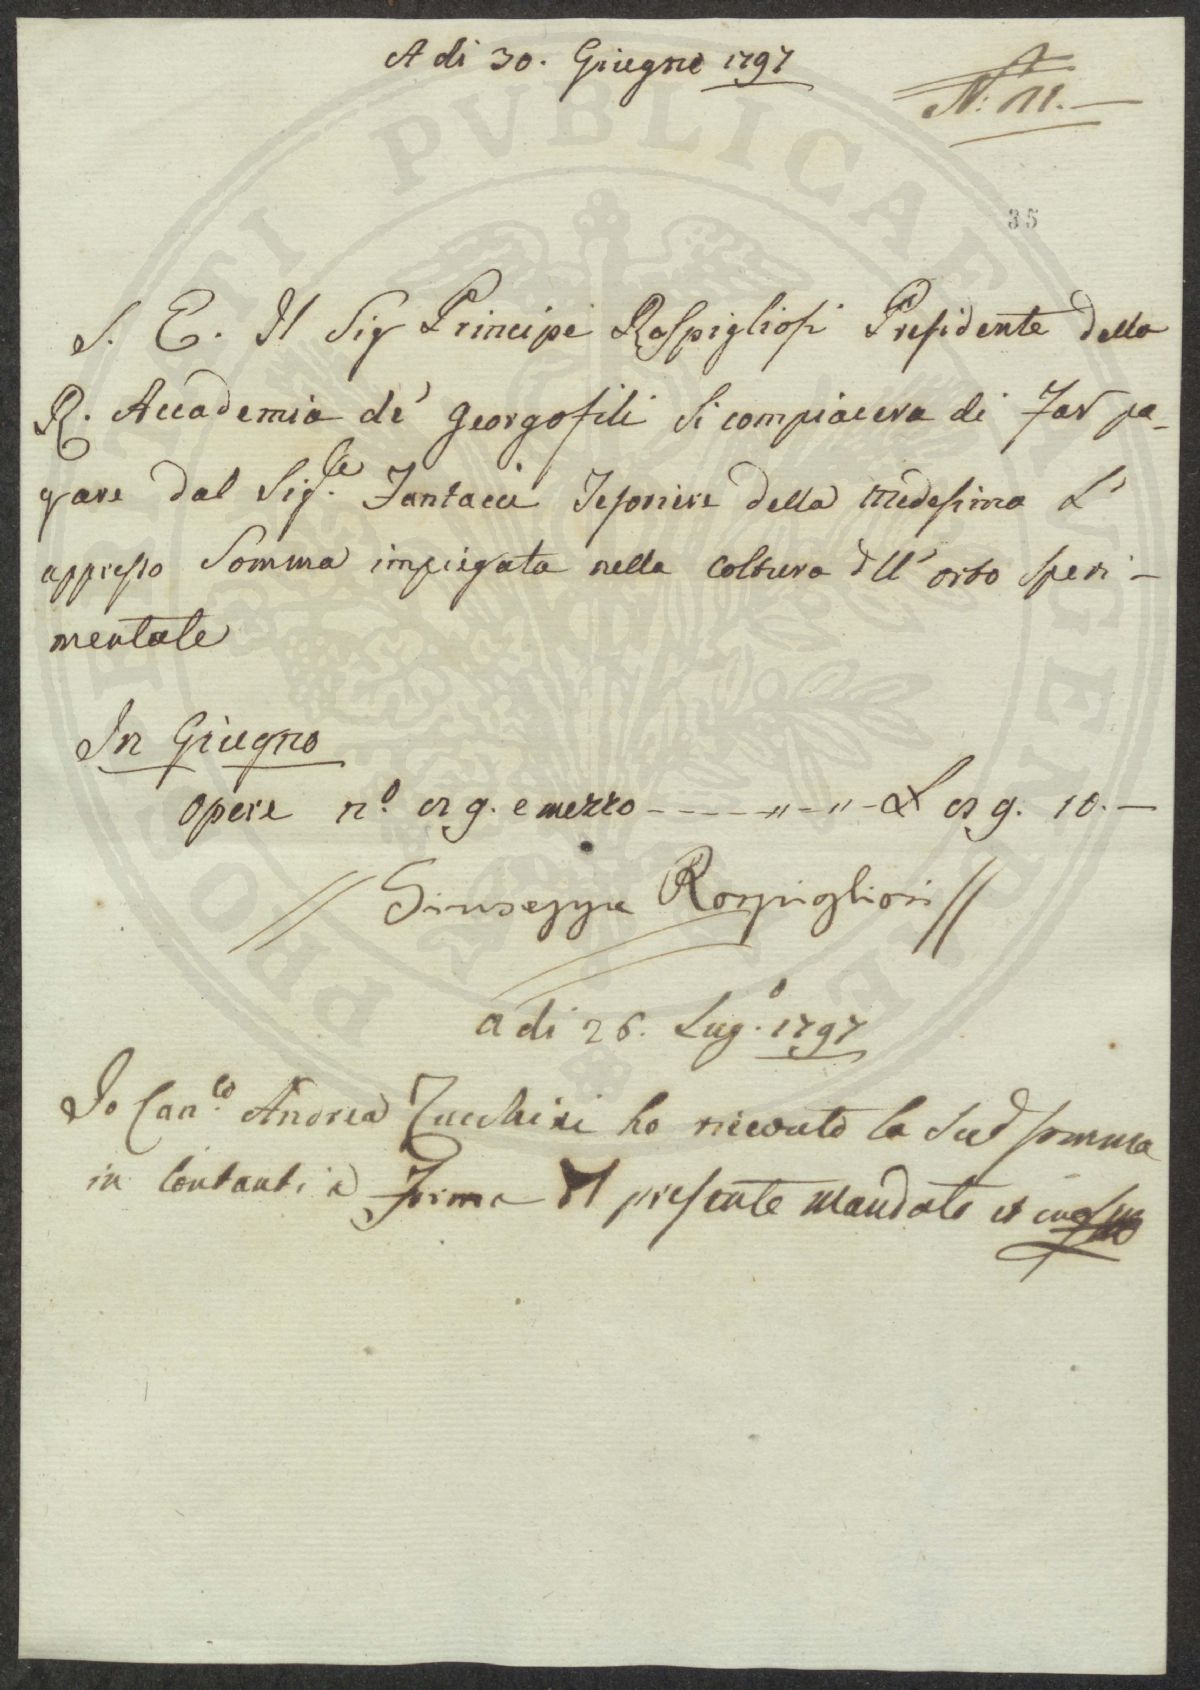 A di 30. Giugno 1797
N: 11.
35
S. E. Il Sig Principe Rospigliosi Presidente della
R. Accademia de' Georgofili si compiacera di Far pa-
gare dal Sig.re Fantacci Tesoriere della Medesima L'
appresso Somma impiegata nella coltura dell' orto speri-
mentale
In Giugno
Opere n.o 29. e mezzo L 29. 10.-
Giuseppe Rospigliosi
a di 26. Lug.o 1797
Io Can.co Andrea Zucchini ho ricevuto la Sud somma
in Contanti a Forma del presente Mandato
PROSPERITATI PVBLICAE AVGENDAE